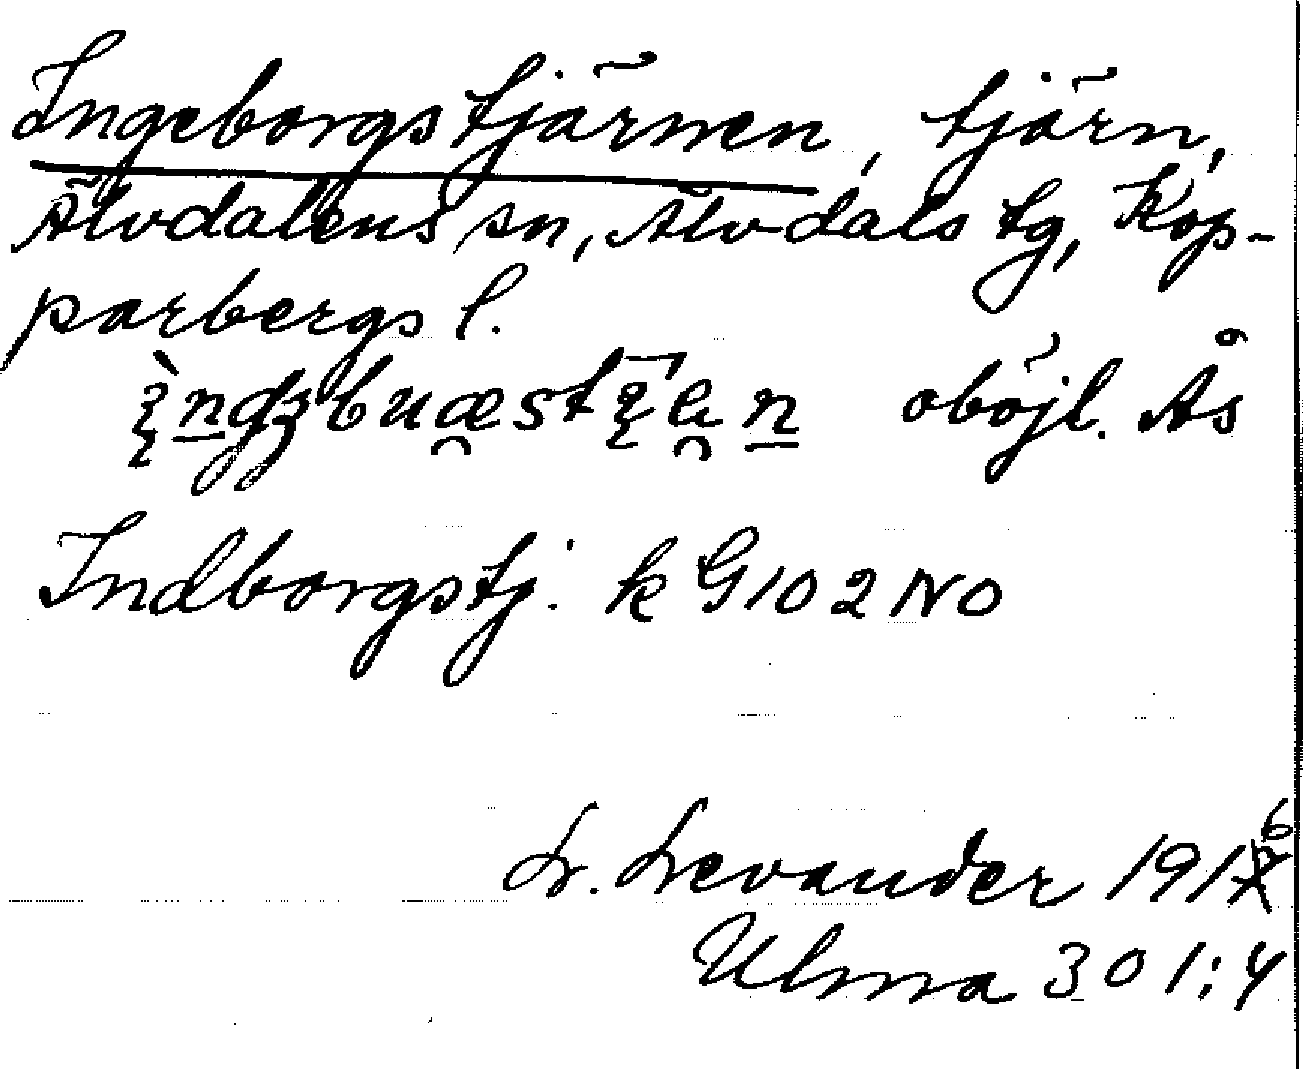 Ingeborgstjärnen, tjärn,
Älvdalens sn, Älvdals tg, Kop-
parbergs l.
oböjl. Ås
Indborgstj. k G102NO
L. Levander 1916
Ulma 301:4